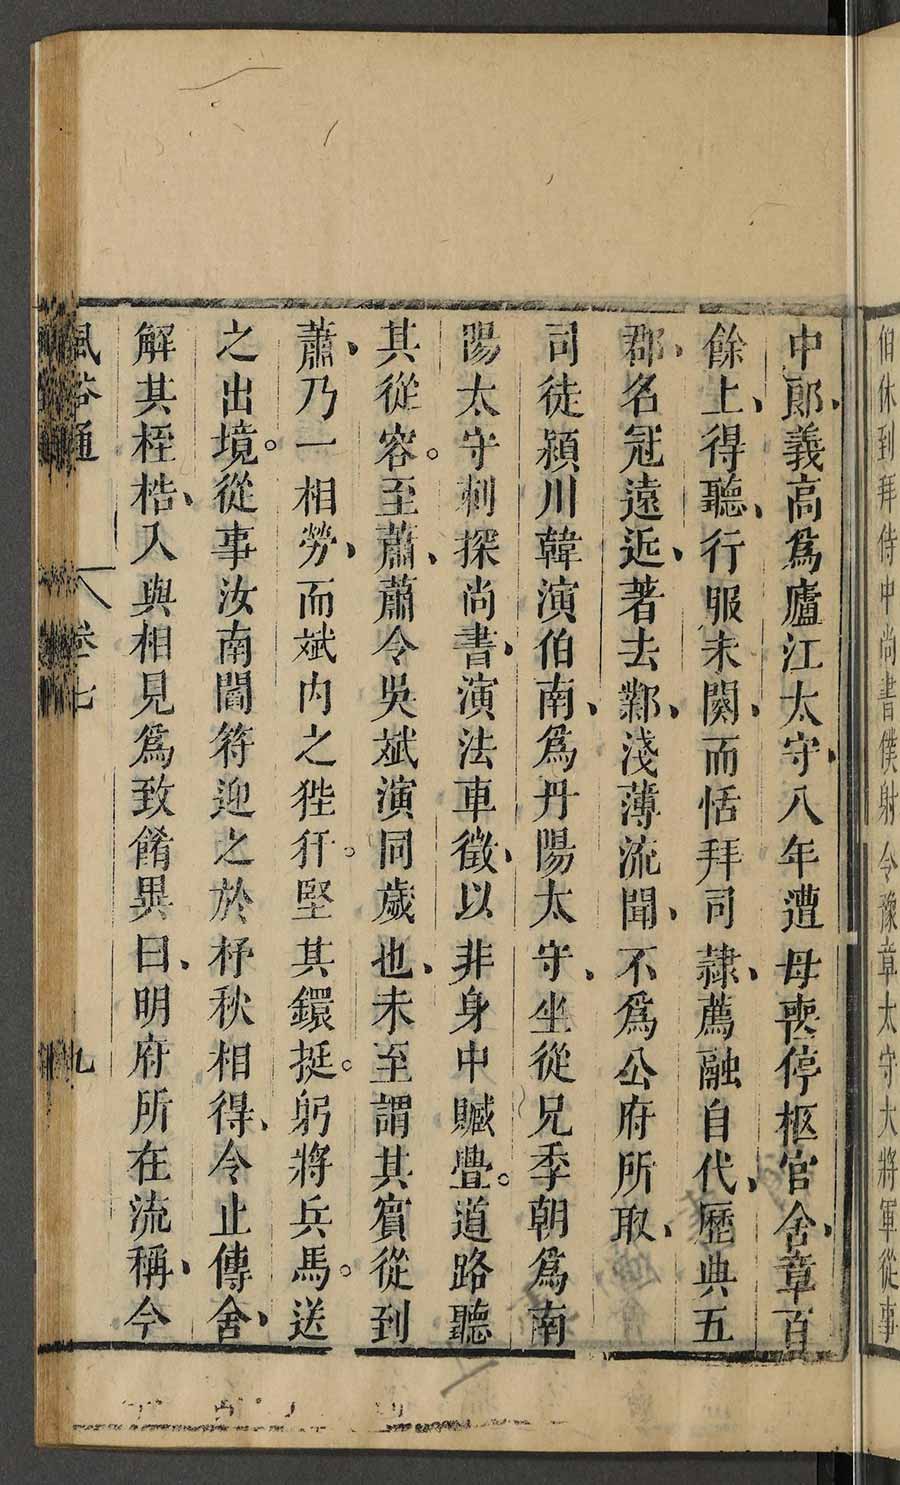 伯休到拜侍中尚書僕射令豫章太守大將軍從事
中郎、義高爲廬江太守、八年遭母喪、停柩官舍、章百
餘上、得聽、行服未闋、而恬拜司隷、薦融自代、歷典五
郡、名冠遠近、著去鄴、淺薄流聞、不爲公府所取、
司徒潁川韓演伯南、爲丹陽太守、坐從兄季朝爲南
陽太守刺探尚書、演法車徵、以非身中贓舋。道路聽
其從容。至蕭、蕭令吳斌演同歲也、未至謂其賓從到
蕭、乃一相勞、而斌内之狴犴。堅其鐶挺。躬將兵馬。送
之出境。從事汝南閻符迎之於杼秋相得、令止傳舍、
解其桎梏、入與相見爲致餚異曰、明府所在流稱、今
風俗通
卷七
九